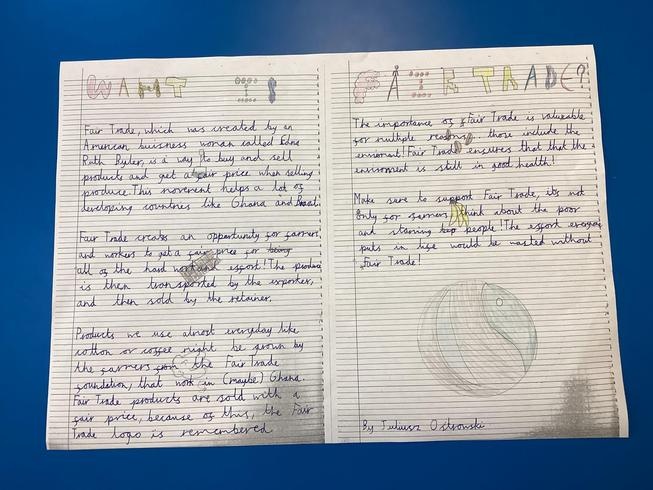 WAHT IS
Fair Trade, which was created by an
American buisness woman called Edna
Ruth Byler, is a way to buy and sell
products and get a fair price when selling
produce. This movement helps a lot of
developing countries like Ghana and Brazil.
Fair Trade creates an opportunity for farmers
and workers to get a fair price for being
all of the hard work and effort! The produce
is then transported by the exporter,
and then sold by the retainer.
Products we use almost everyday like
cotton or coffee might be grown by
the farmers from the Fair Trade
foundation, that work in (maybe) Ghana.
Fair Trade products are sold with a
fair price, because of this, the Fair
Trade logo is remembered
FAIR TRADE?
The importance of Fair Trade is valueable
for multiple reasons, those include the
enviroment! Fair Trade ensures that that the
enviroment is still in good health!
Make sure to support Fair Trade, it's not
only for farmers, think about the poor
and starving people! The effort everyone
puts in life would be wasted without
Fair Trade!
By Juliusz Ostrowski